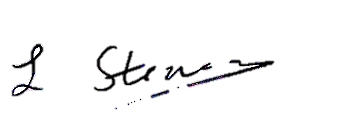 L Steven